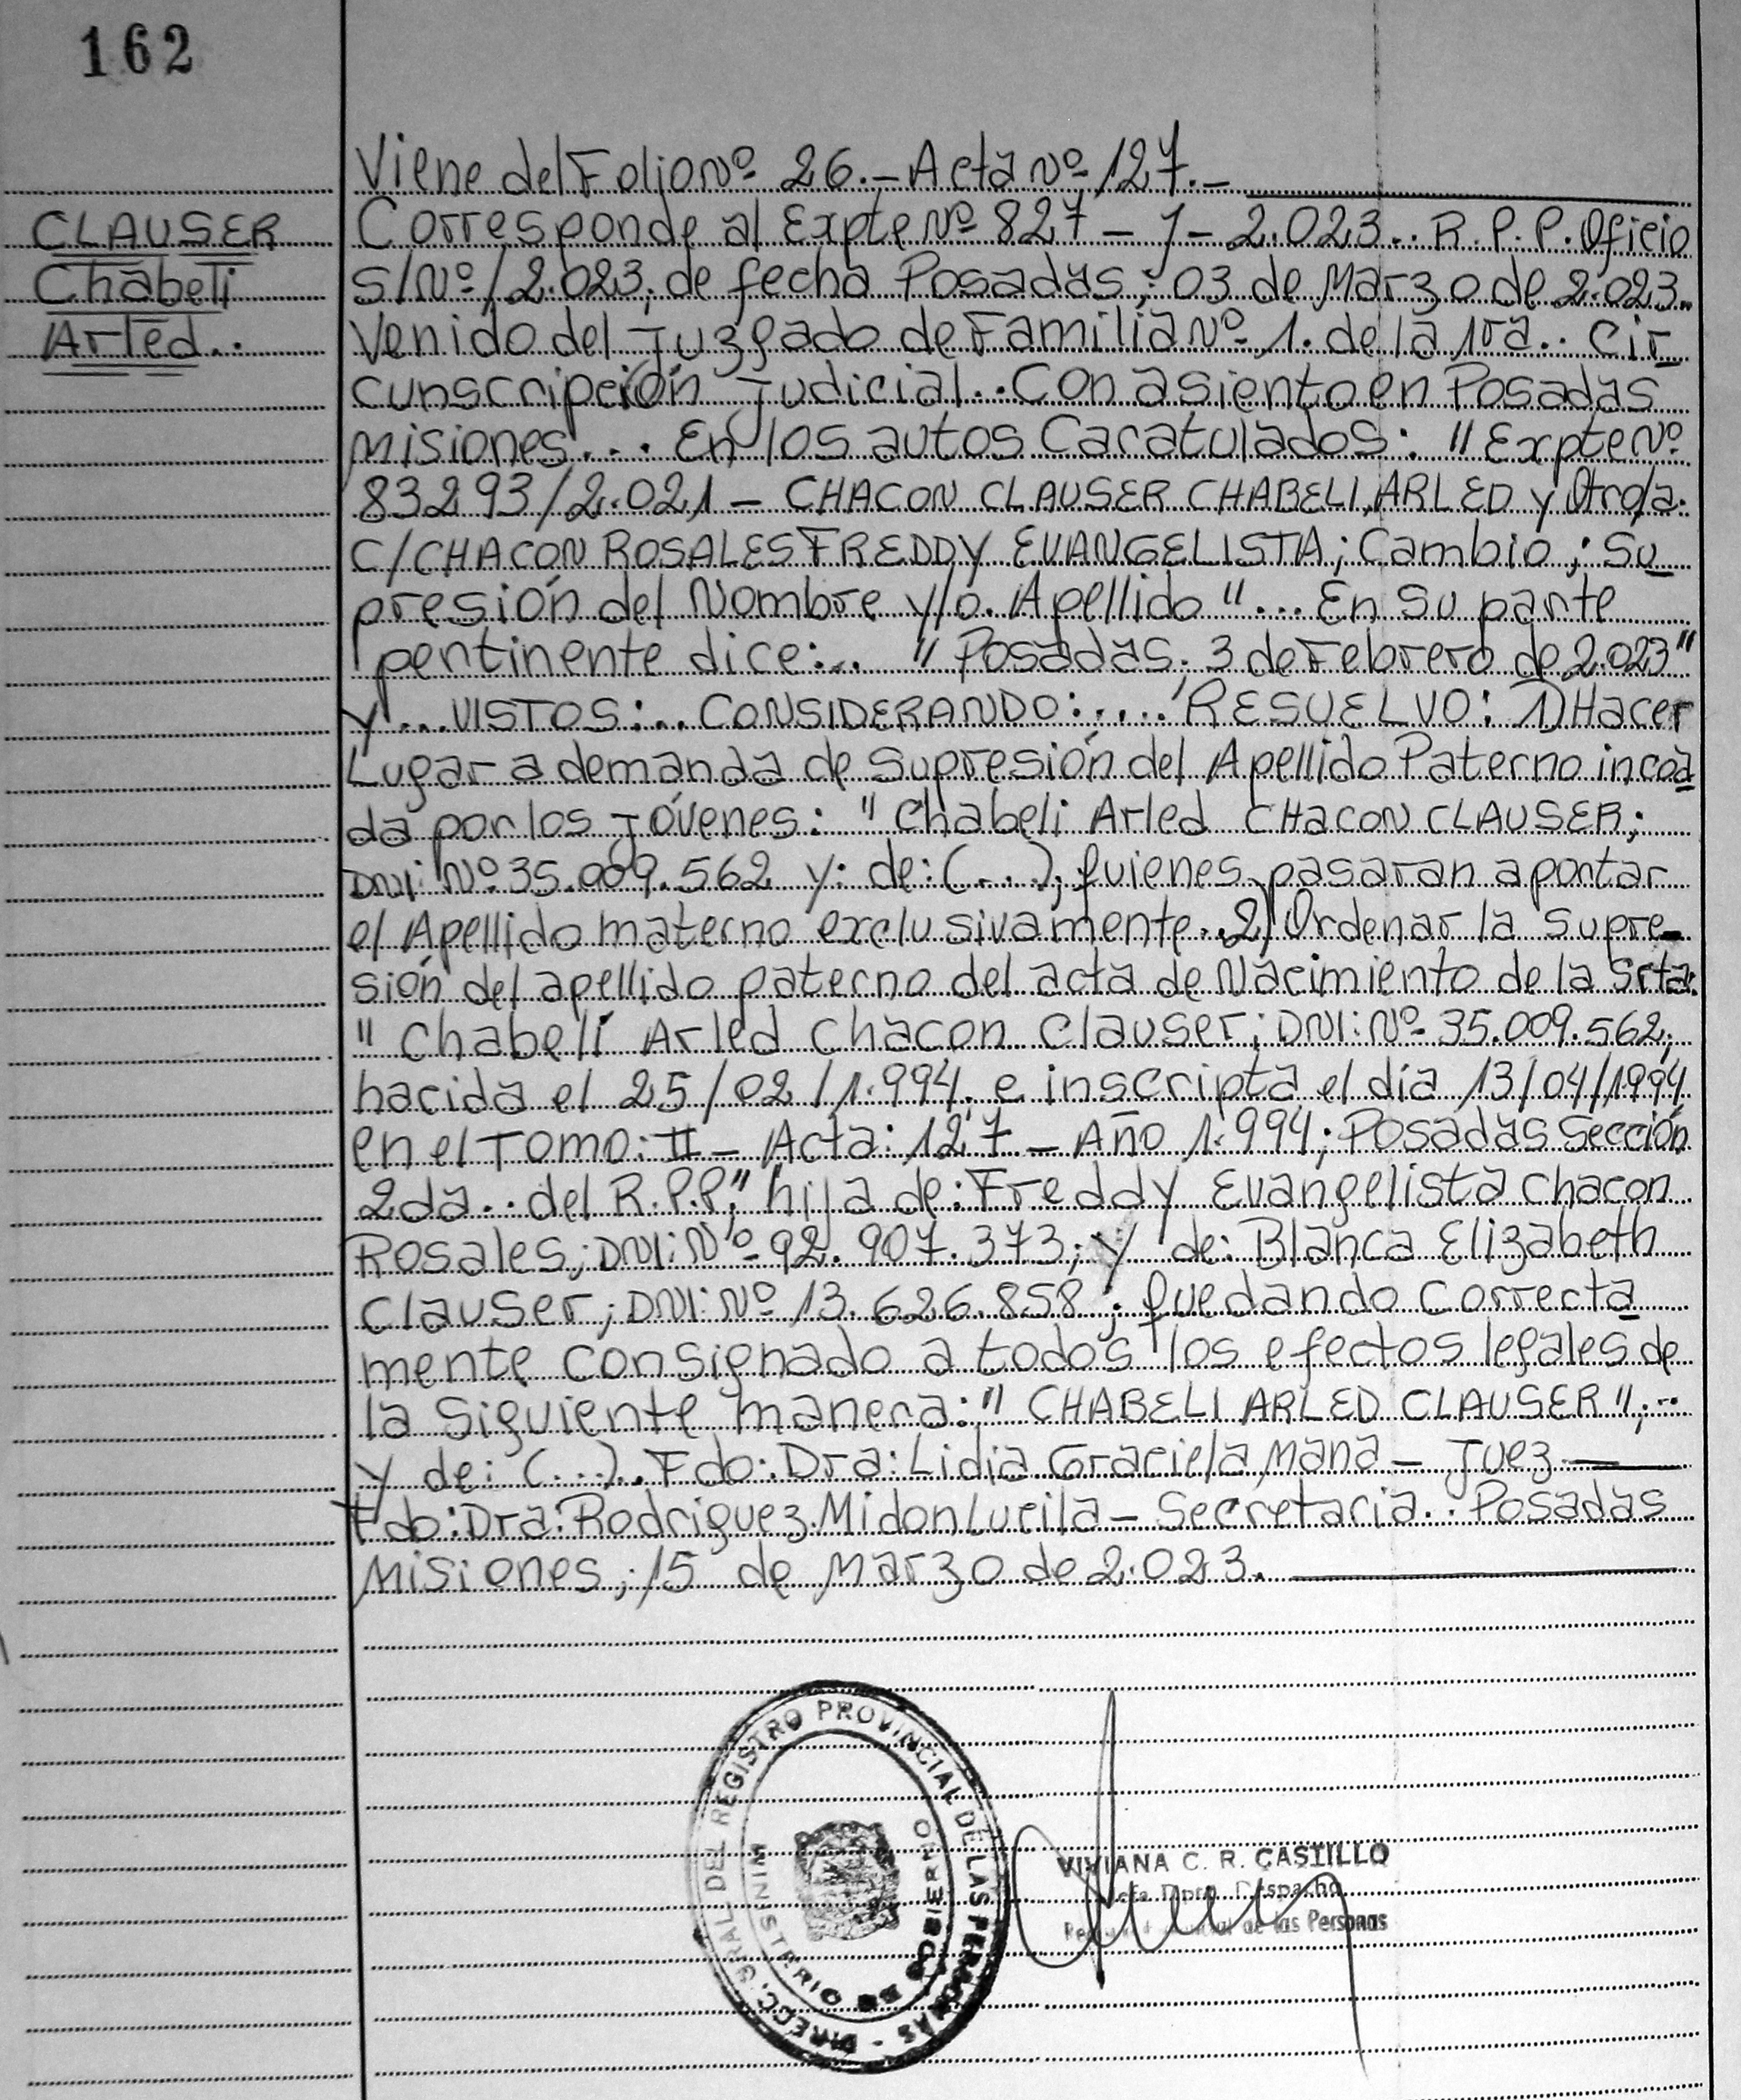 162
CLAUSER
Chabeli
Arled..
Viene del Folio Nº 26.- Acta Nº 127.-
Corresponde al Expte Nº 827 - J - 2.023.. R.P.P. Oficio
S/Nº/2.023; de fecha Posadas; 03 de Marzo de 2.023..
Venido del Juzgado de Familia Nº 1. de la 1ra.. Cir
cunscripción Judicial.. Con asiento en Posadas
Misiones... En los autos Caratulados: "Expte Nº
83293/2.021 - CHACON CLAUSER CHABELI, ARLED y Otro/a.
C/CHACON ROSALES FREDDY EVANGELISTA; Cambio; Su
presión del Nombre y/o. Apellido"... En su parte
pertinente dice:.. "Posadas. 3 de Febrero de 2.023"
y... VISTOS:.. CONSIDERANDO:.... RESUELVO: 1) Hacer
Lugar a demanda de Supresión del Apellido Paterno incoa
da por los jóvenes: "Chabeli Arled CHACON CLAUSER;
DNI: Nº 35.009.562 y: de: (...); quienes pasaran a portar
el Apellido materno exclusivamente.. 2) Ordenar la supre-
sión del apellido paterno del acta de Nacimiento de la Srta:
"Chabeli Arled Chacon Clauser; DNI: Nº 35.009.562;
nacida el 25/02/1.994. e inscripta el día 13/04/1994
en el Tomo: II - Acta: 127 - Año 1.994; Posadas Sección
2da.. del R.P.P."; hija de: Freddy Evangelista Chacon
Rosales; DNI: Nº 92.907.373; y de: Blanca Elizabeth
Clauser; DNI: Nº 13.626.858; quedando correcta
mente consignado a todos los efectos legales de
la siguiente manera: "CHABELI ARLED CLAUSER";..
y de: (...).. Fdo: Dra: Lidia Graciela Mana - Juez -
Fdo: Dra: Rodriguez Midon Lucila - Secretaria.. Posadas
Misiones; 15 de Marzo de 2.023.
DIREC. GRAL DEL REGISTRO PROVINCIAL DE LAS PERSONAS -
MINISTERIO DE GOBIERNO
VIVIANA C. R. CASTILLO
Jefa Dpto. Despacho
de las Personas